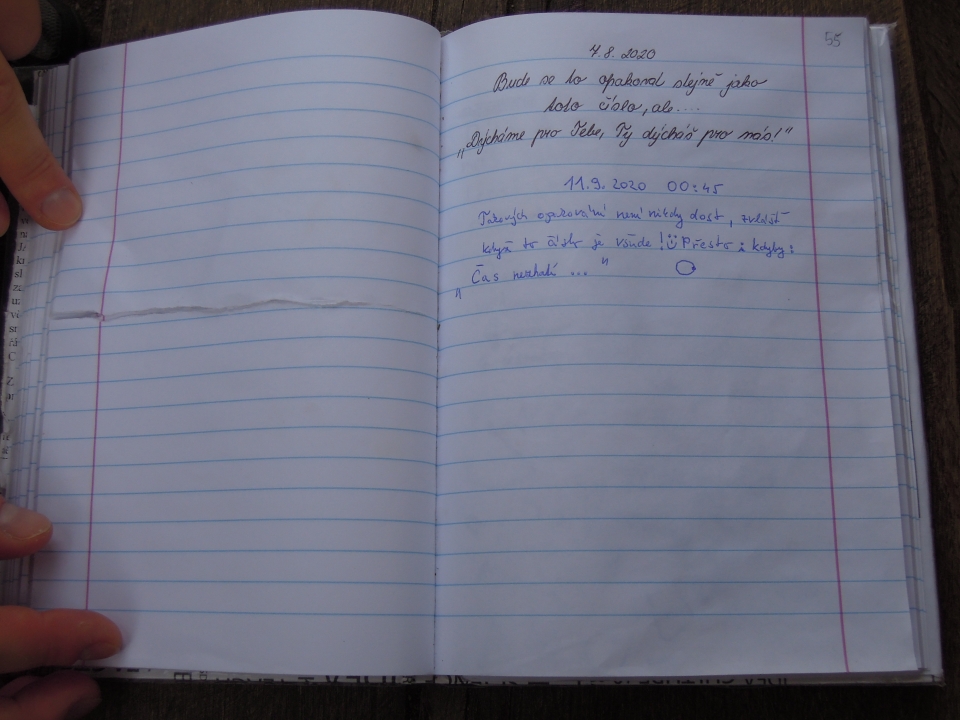 55
4.8.2020
Bude se to opakovat stejně jako
toto číslo, ale....
„Dýcháme pro Tebe, Ty dýcháš pro nás!"
11.9.2020 00:45
Takových opakování není nikdy dost, zvlášť
když to číslo je všude! Přesto : kdyby:
„Čas nezhalí ..."